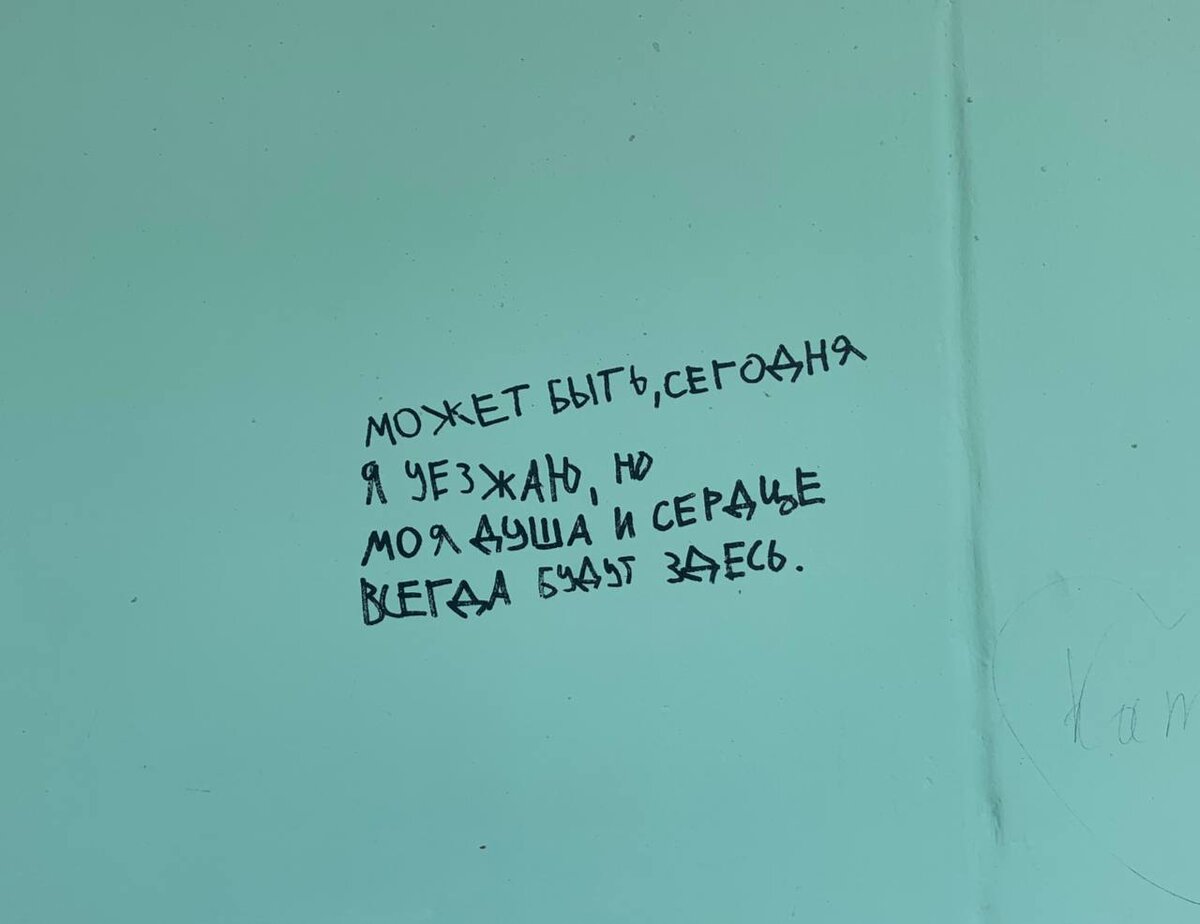 МОЖЕТ БЫТЬ, СЕГОДНЯ
Я УЕЗЖАЮ, НО
МОЯ ДУША И СЕРДЦЕ
ВСЕГДА БУДУТ ЗДЕСЬ.